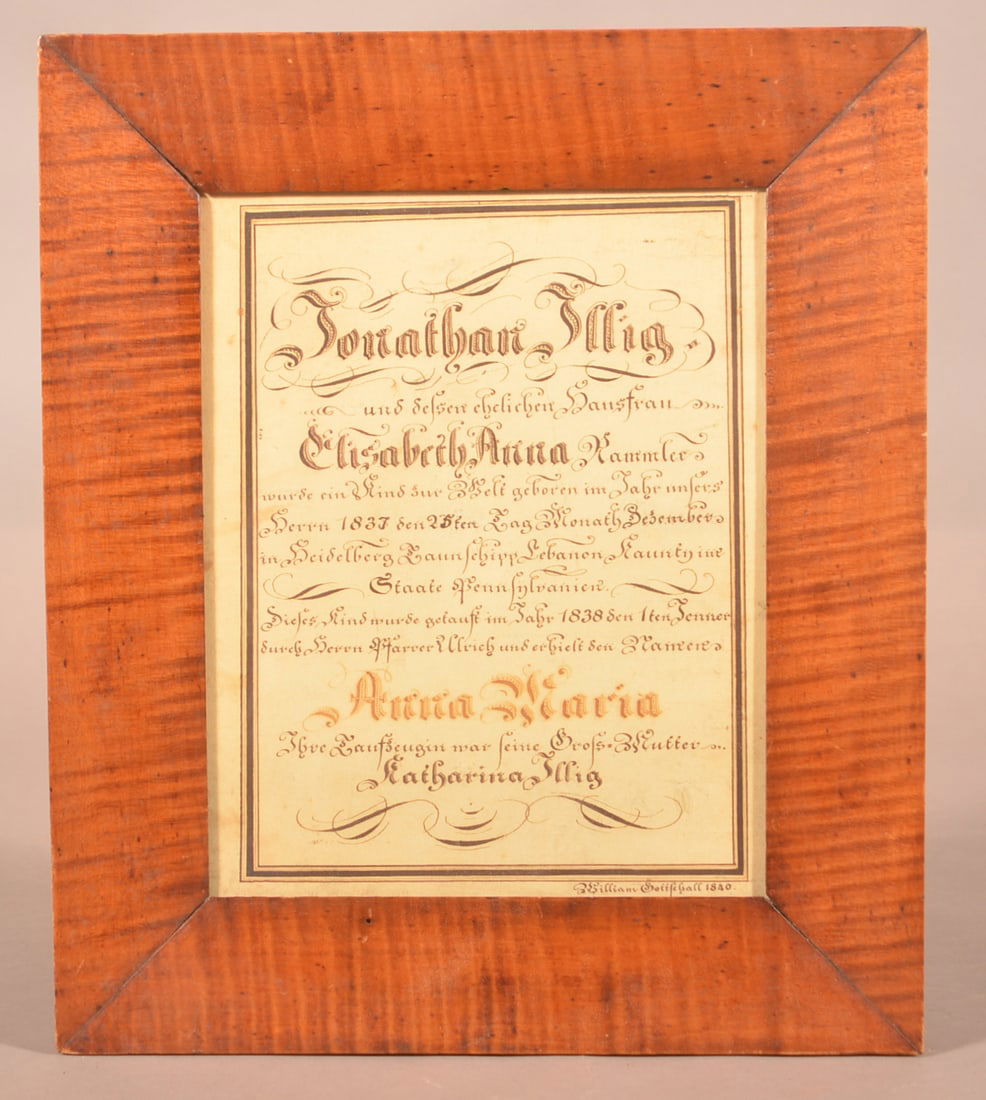 Jonathan Illig.
und dessen ehelichen Hausfrau
Elisabeth Anna Rammler
wurde ein Kind zur Welt geboren im Jahr unsers
Herrn 1837 den 25ten Tag Monath Dezember
in Heidelberg Taunschipp Lebanon Kaunty im
Staate Pennsylvanien.
Dieses Kind wurde getauft im Jahr 1838 den 1ten Jenner
durch Herrn Pfarrer Ullrich und erhielt den Namen
Anna Maria
Ihre Taufzeugin war seine Gross-Mutter
Katharina Illig
William Gottschall 1840.